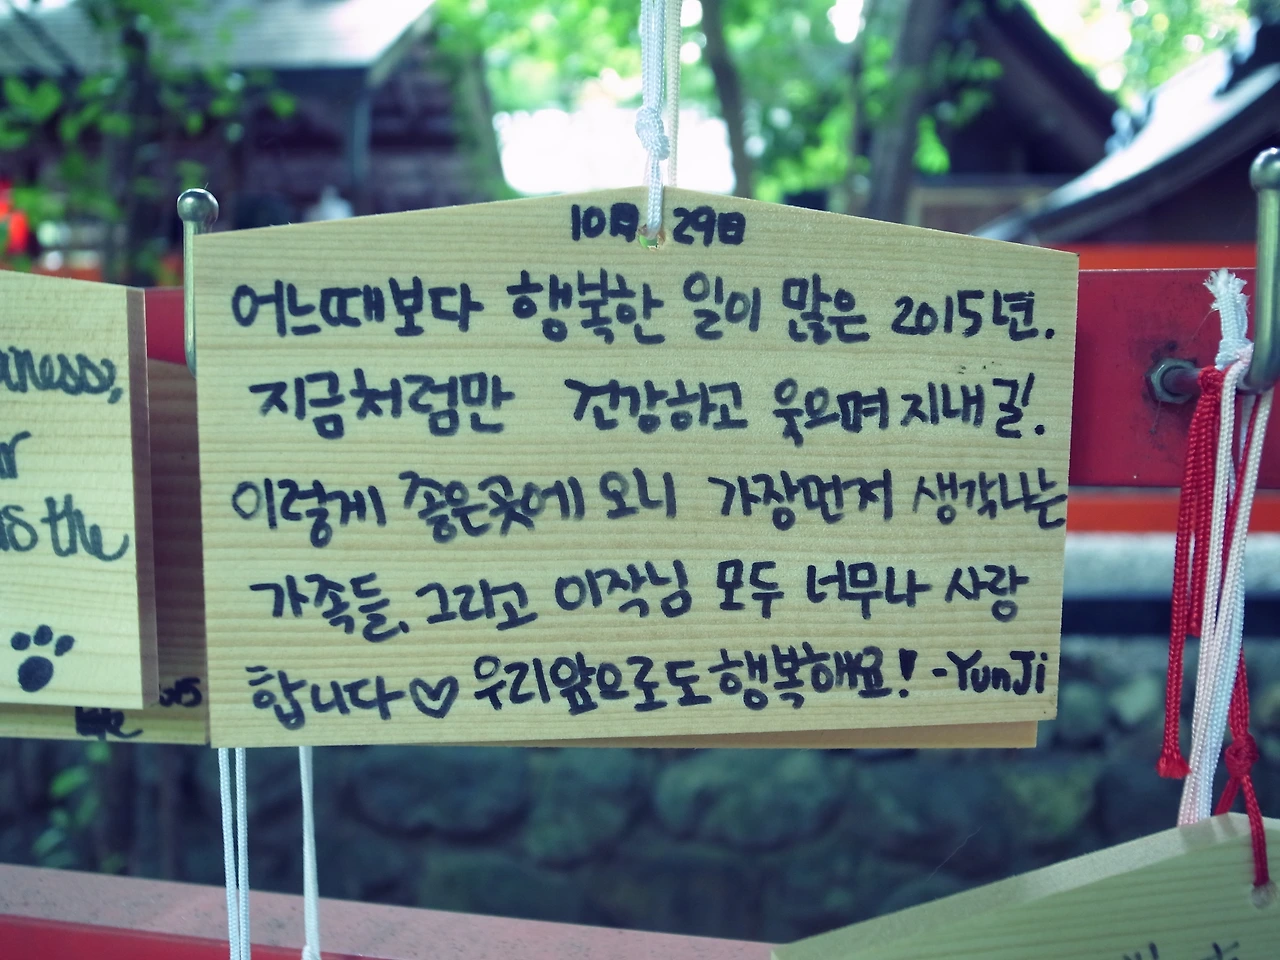 10月 29日
어느때보다 행복한 일이 많은 2015년.
지금처럼만 건강하고 웃으며 지내길.
이렇게 좋은곳에 오니 가장먼저 생각나는
가족들, 그리고 이작님 모두 너무나 사랑
합니다♡ 우리앞으로도 행복해요! -YunJi
is the